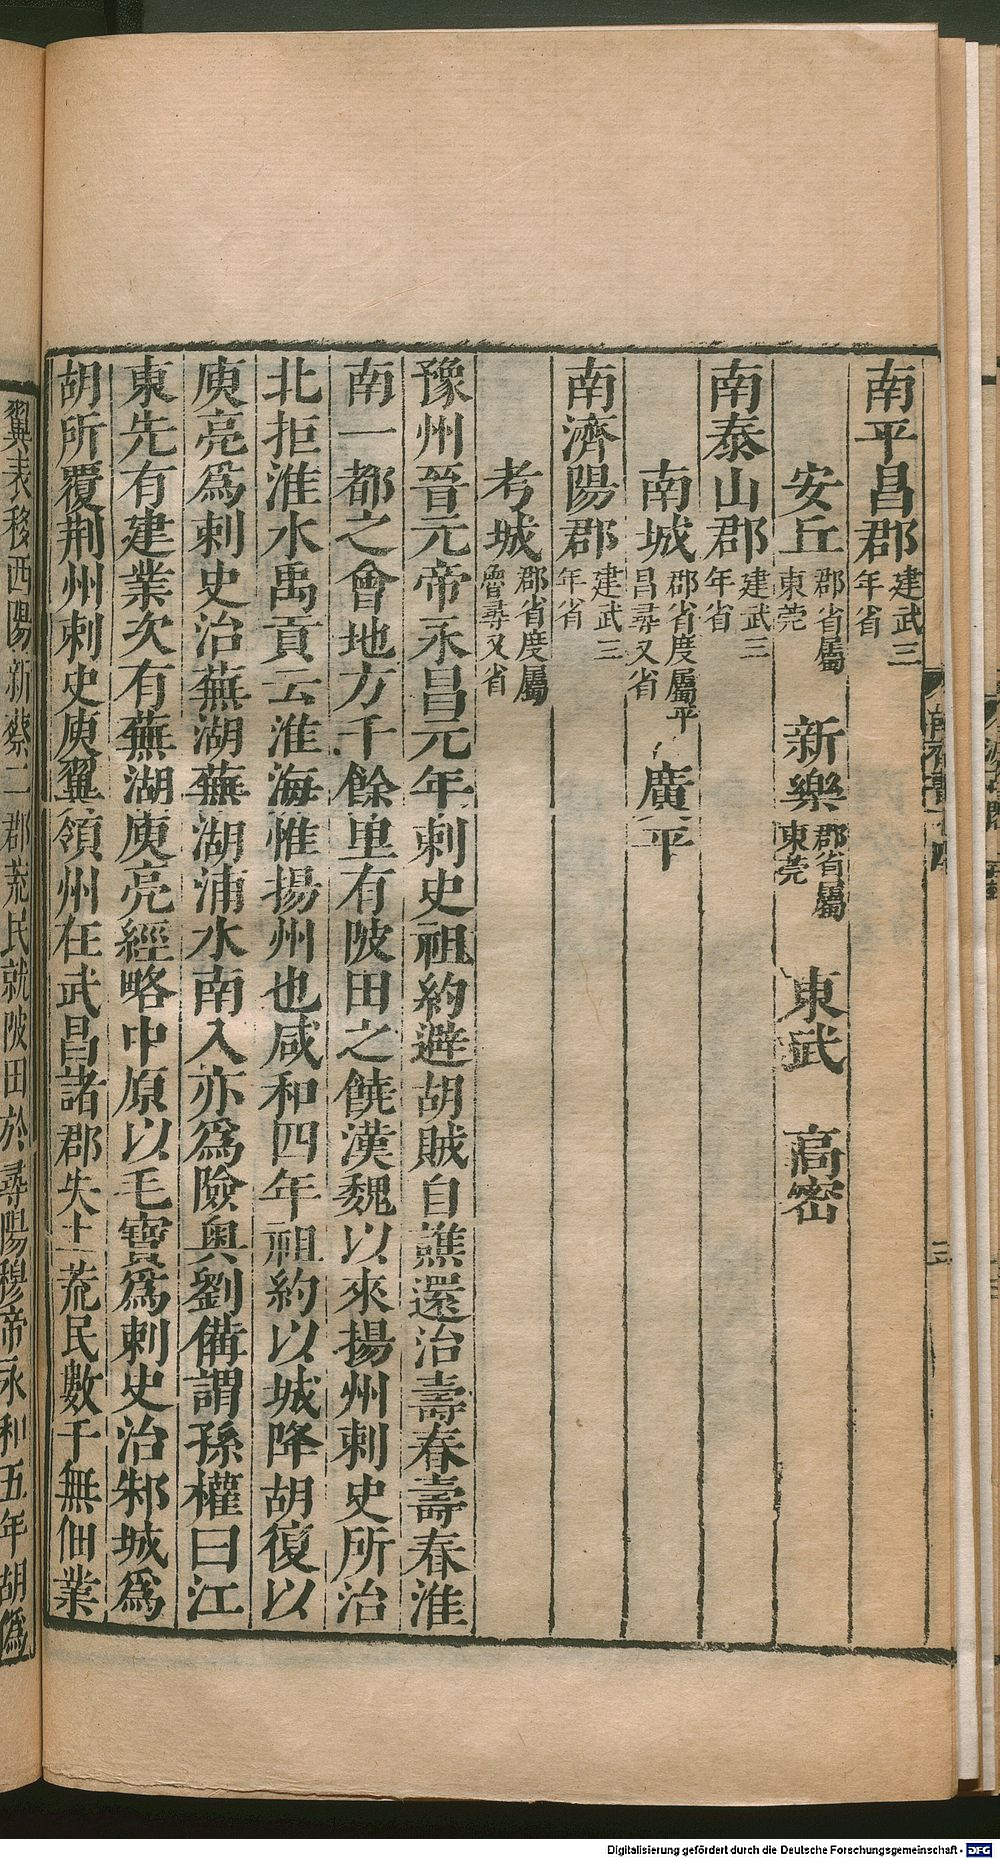 南平昌郡 建武三年省
安丘 郡省屬東莞 新樂 郡省屬東莞 東武 高密
南泰山郡 建武三年省
南城 郡省度屬平昌尋又省 廣平
南濟陽郡 建武三年省
考城 郡省度屬魯尋又省
豫州晉元帝永昌元年刺史祖約避胡賊自譙還治壽春壽春淮
南一都之會地方千餘里有陂田之饒漢魏以來揚州刺史所治
北拒淮水禹貢云淮海惟揚州也咸和四年祖約以城降胡復以
庾亮爲刺史治蕪湖蕪湖浦水南入亦爲險奧劉備謂孫權曰江
東先有建業次有蕪湖庾亮經略中原以毛寶爲刺史治邾城爲
胡所覆荆州刺史庾翼領州在武昌諸郡失土荒民數千無佃業
翼表移西陽新蔡二郡荒民就陂田於尋陽穆帝永和五年胡僞
Digitalisierung gefördert durch die Deutsche Forschungsgemeinschaft - DFG